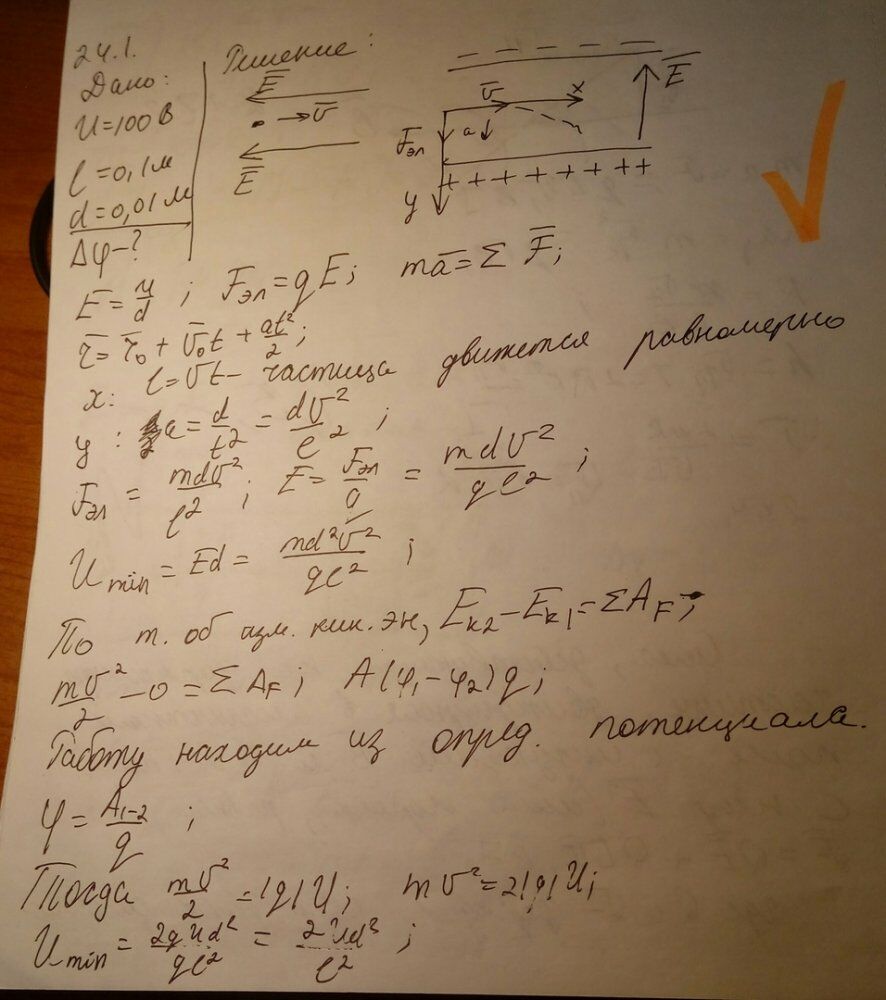 24.1.
Дано:
U=100 В
l=0,1 м
d=0,01 м
Δφ-?
Решение:
E̅
• → v̅
E̅
− − − − −
E̅
v̅ x
Fэл a↓
y + + + + + + + +
E = u/d ; Fэл = qE; ma̅ = Σ F̅;
r̅ = r̅₀ + v̅₀t + at²/2;
x: l = vt - частица движется равномерно
y: a = d/t² = dv²/l² ;
Fэл = mdv²/l² ; E = Fэл/q = mdv²/ql² ;
Umin = Ed = md²v²/ql² ;
По т. об изм. кин. эн, Eк2 - Eк1 = ΣA_F;
mv²/2 - 0 = ΣA_F; A(φ₁-φ₂)q;
Работу находим из опред. потенциала.
φ = A₁₋₂/q ;
Тогда mv²/2 = |q|U; mv² = 2|q|U;
Umin = 2qUd²/ql² = 2Ud²/l² ;